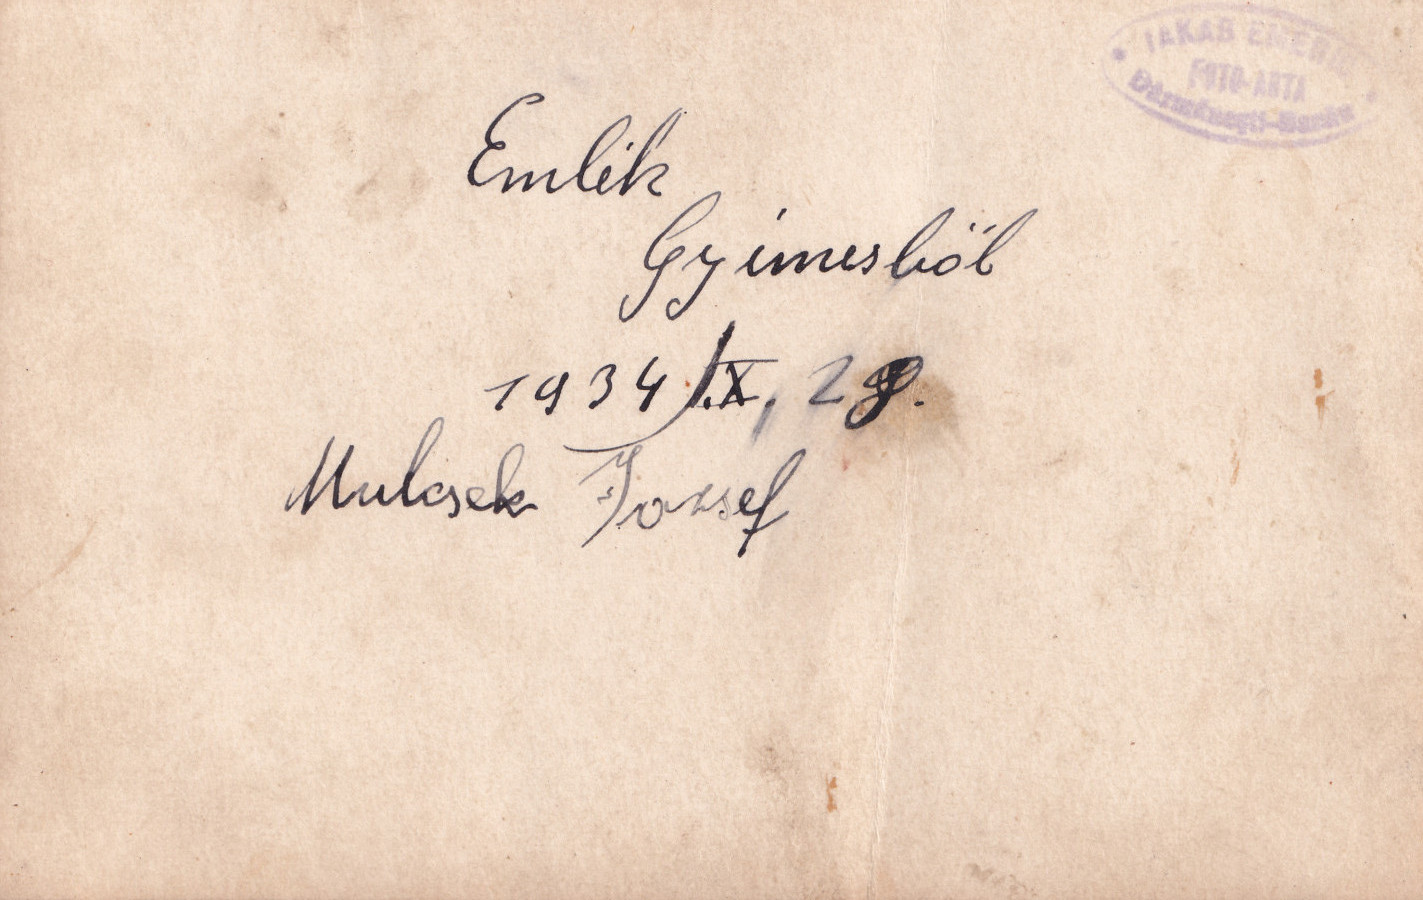 JAKAB EMERIC
FOTO-ARTA
Emlék
Gyimesből
1934/IX, 28.
Mulcsek Jozsef